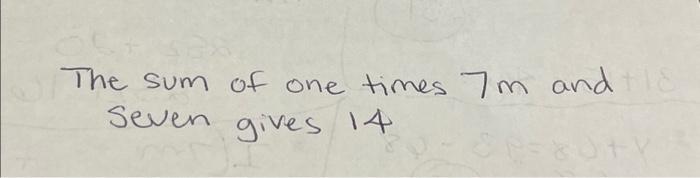 The sum of one times 7m and
Seven gives 14